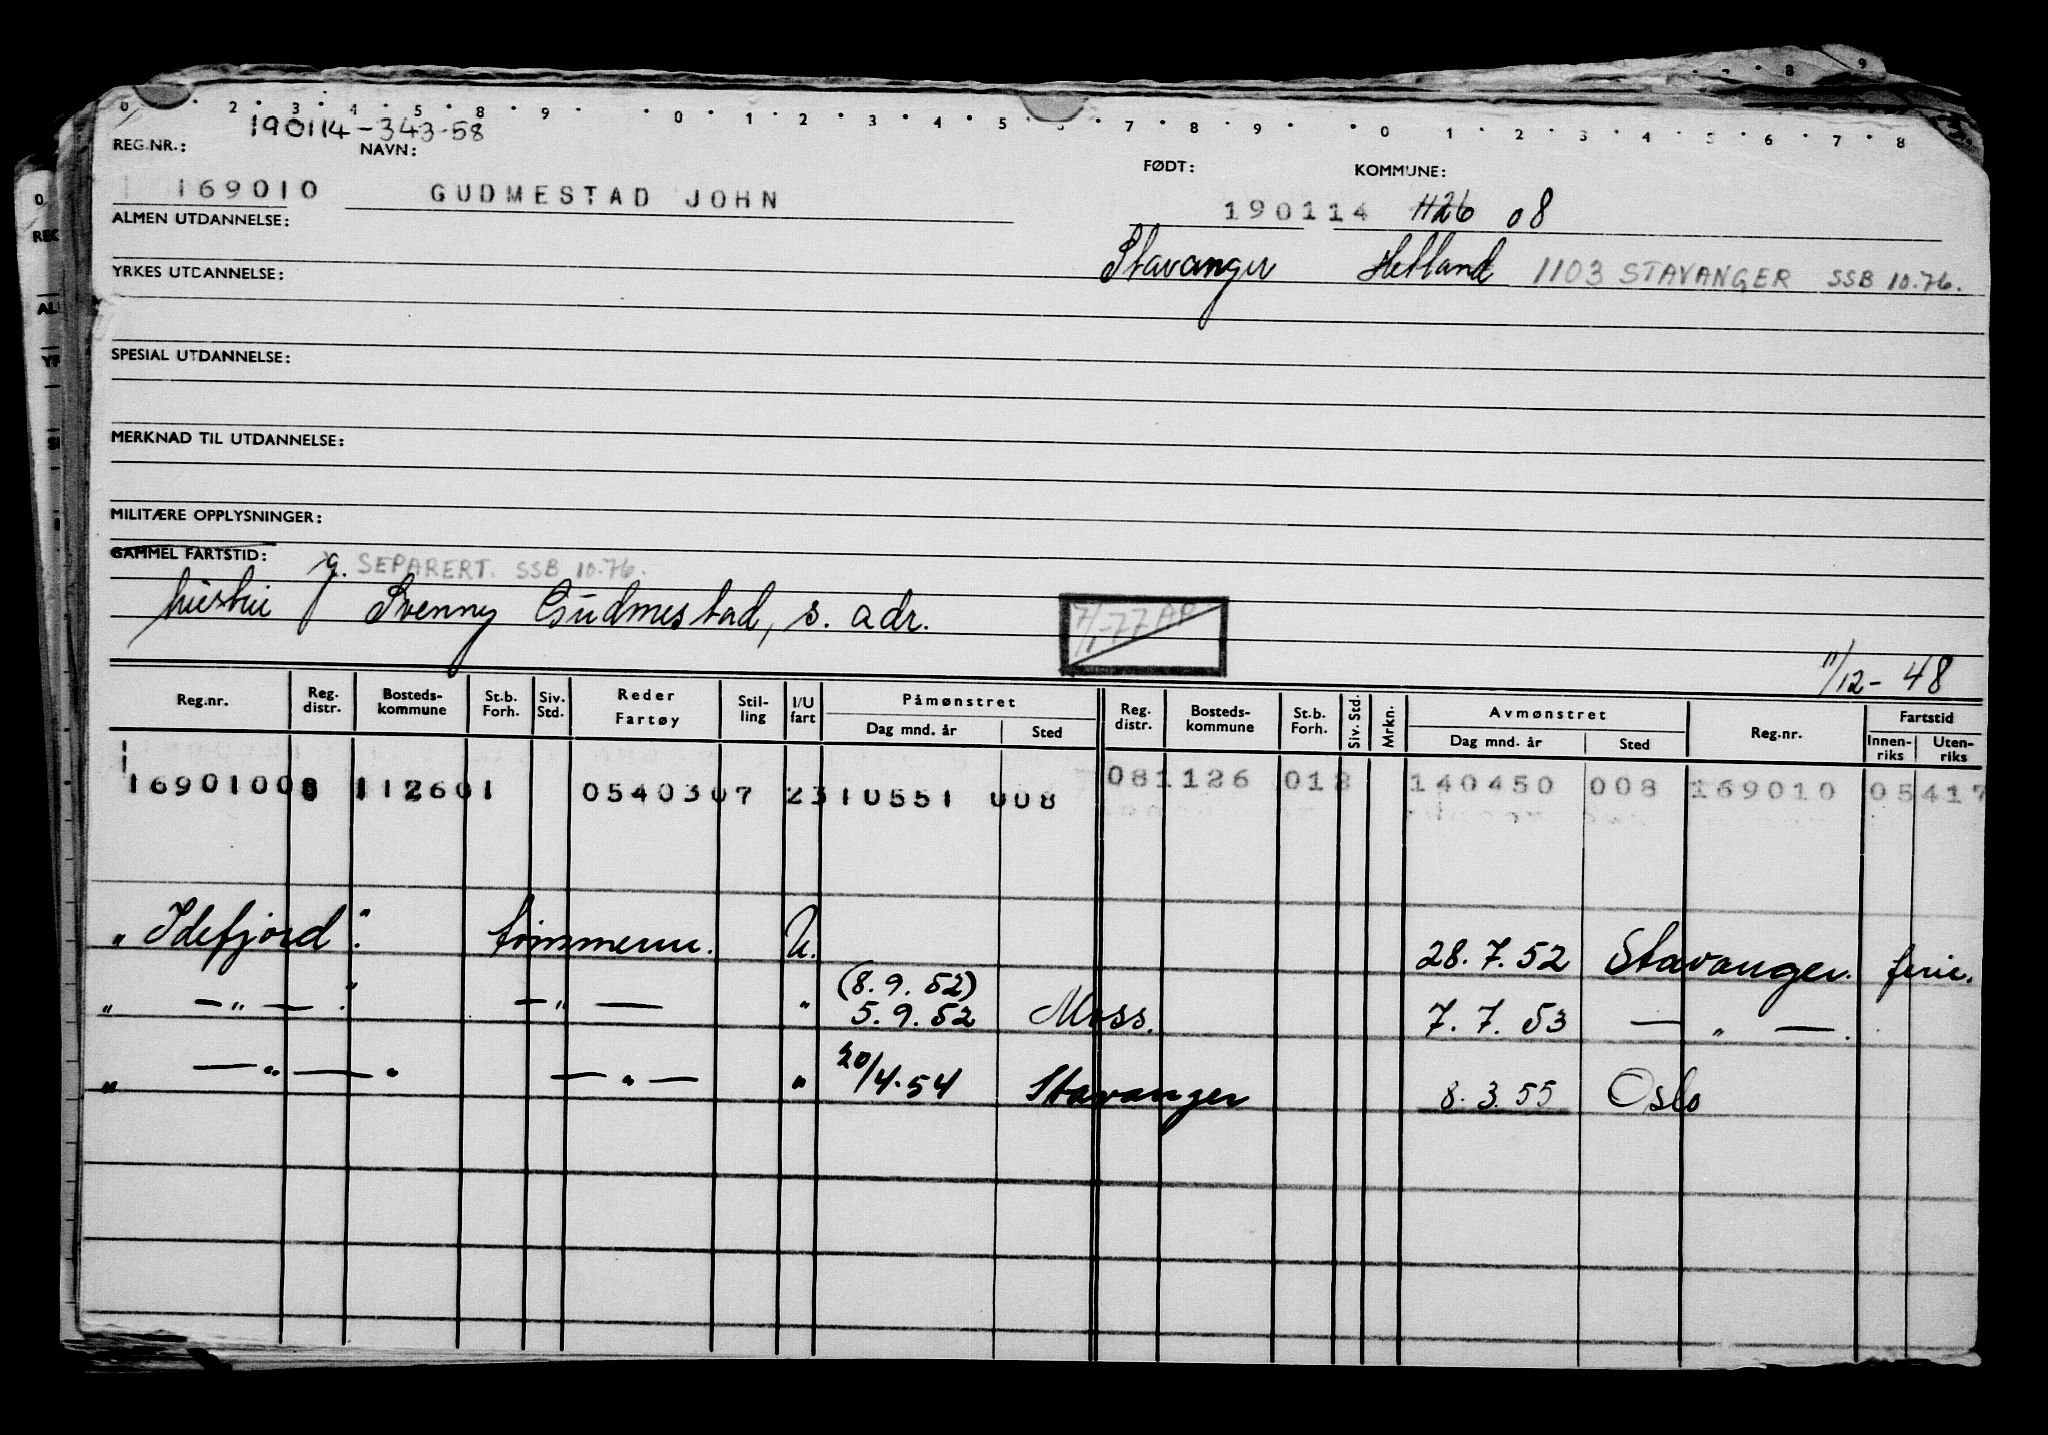 0 2 3 4 5 8 9 0 1 2 3 4 5 7 8 9 0 1 2 3 4 5 6 7 8
8 9
190114-343-58
REG.NR.: NAVN: FØDT: KOMMUNE:
169010 GUDMESTAD JOHN 190114 1126 08
ALMEN UTDANNELSE:
Stavanger Hetland 1103 STAVANGER SSB 10.76.
YRKES UTDANNELSE:
SPESIAL UTDANNELSE:
MERKNAD TIL UTDANNELSE:
MILITÆRE OPPLYSNINGER:
GAMMEL FARTSTID: g. SEPARERT. SSB 10-76.
hustru Svenny Gudmestad, s. adr.
7/1-77 AP
11/12-48
Reg.nr. Reg. distr. Bosteds-kommune St.b. Forh. Siv. Std. Reder Fartøy Stil-ling I/U fart Påmønstret Reg. distr. Bosteds-kommune St.b. Forh. Siv. Std. Mrkn. Avmønstret Reg.nr. Fartstid
Dag mnd. år Sted Dag mnd. år Sted Innen-riks Uten-riks
169010 08 112601 0540307 2310551 008 081126 012 140450 008 169010 05417
" Idefjord". tømmerm. U. 28.7.52 Stavanger. ferie.
(8.9.52)
" — " — " — " — " 5.9.52 Moss. 7.7.53 — " —.
" — " — " — " — " 20/4.54 Stavanger 8.3.55 Oslo